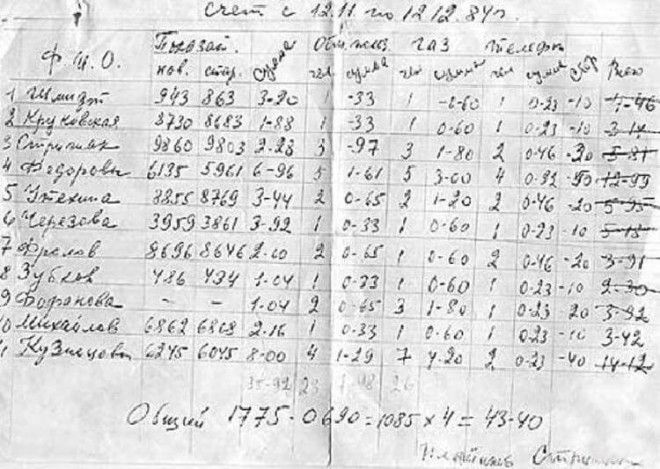 Счет с 12.11. по 12.12.84г.
Показан. Общ. польз. газ телефон
Ф.И.О. нов. стар. сумма чел сумма чел сумма чел сумма Всего
1 Шмидт 943 863 3-20 1 -33 1 -0-60 1 0-23 -10 4-46
2 Круковская 8730 8683 1-88 1 -33 1 0-60 1 0-23 -10 3-14
3 9860 9803 2-28 3 -97 3 1-80 2 0-46 -20 5-81
4 Федоровы 6135 5961 6-96 5 1-61 5 3-00 4 0-92 12-99
5 Утехина 8855 8769 3-44 2 0-65 2 1-20 2 0-46 -20 5-95
6 Черезова 3959 3861 3-92 1 0-33 1 0-60 1 0-23 -10
7 Фролов 8696 8646 2-00 2 0-65 1 0-60 2 0-46 -20 3-91
8 Зубков 486 434 1-04 1 0-33 1 0-60 1 0-23 -10 2-30
9 - - 1-04 2 0-65 3 1-80 1 0-23 20 3-92
10 Михайлов 6862 2-16 1 0-33 1 0-60 1 0-23 -10 3-42
11 Кузнецовы 6245 6045 8-00 4 1-29 7 4-20 2 0-23 -40 14-12
35-92 23 26
Общий 1775-0690=1085 x 4 = 43-40